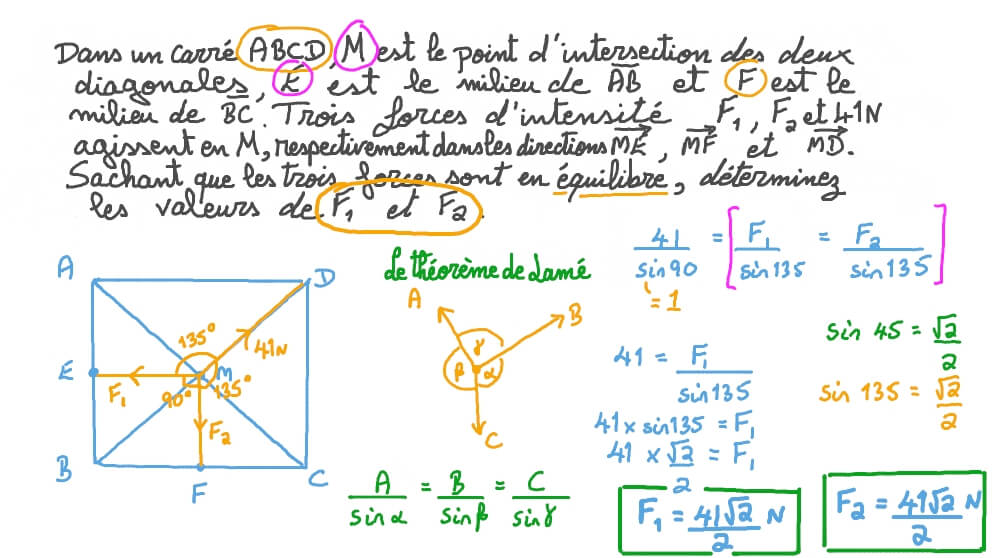 Dans un carré ABCD, M est le point d'intersection des deux
diagonales, É est le milieu de AB et F est le
milieu de BC. Trois forces d'intensité F₁, F₂ et 41N
agissent en M, respectivement dans les directions MÉ, MF et MD.
Sachant que les trois forces sont en équilibre, déterminez
les valeurs de F₁ et F₂.
41/sin90 = [F₁/sin135 = F₂/sin135]
= 1
Le théorème de Lamé
A D
135° 41N
E M
F₁ 90° 135°
F₂
B F C
A B
γ
β α
C
A/sin α = B/sin β = C/sin γ
41 = F₁/sin135
41 × sin135 = F₁
41 × √2/2 = F₁
sin 45 = √2/2
sin 135 = √2/2
F₁ = 41√2/2 N
F₂ = 41√2/2 N